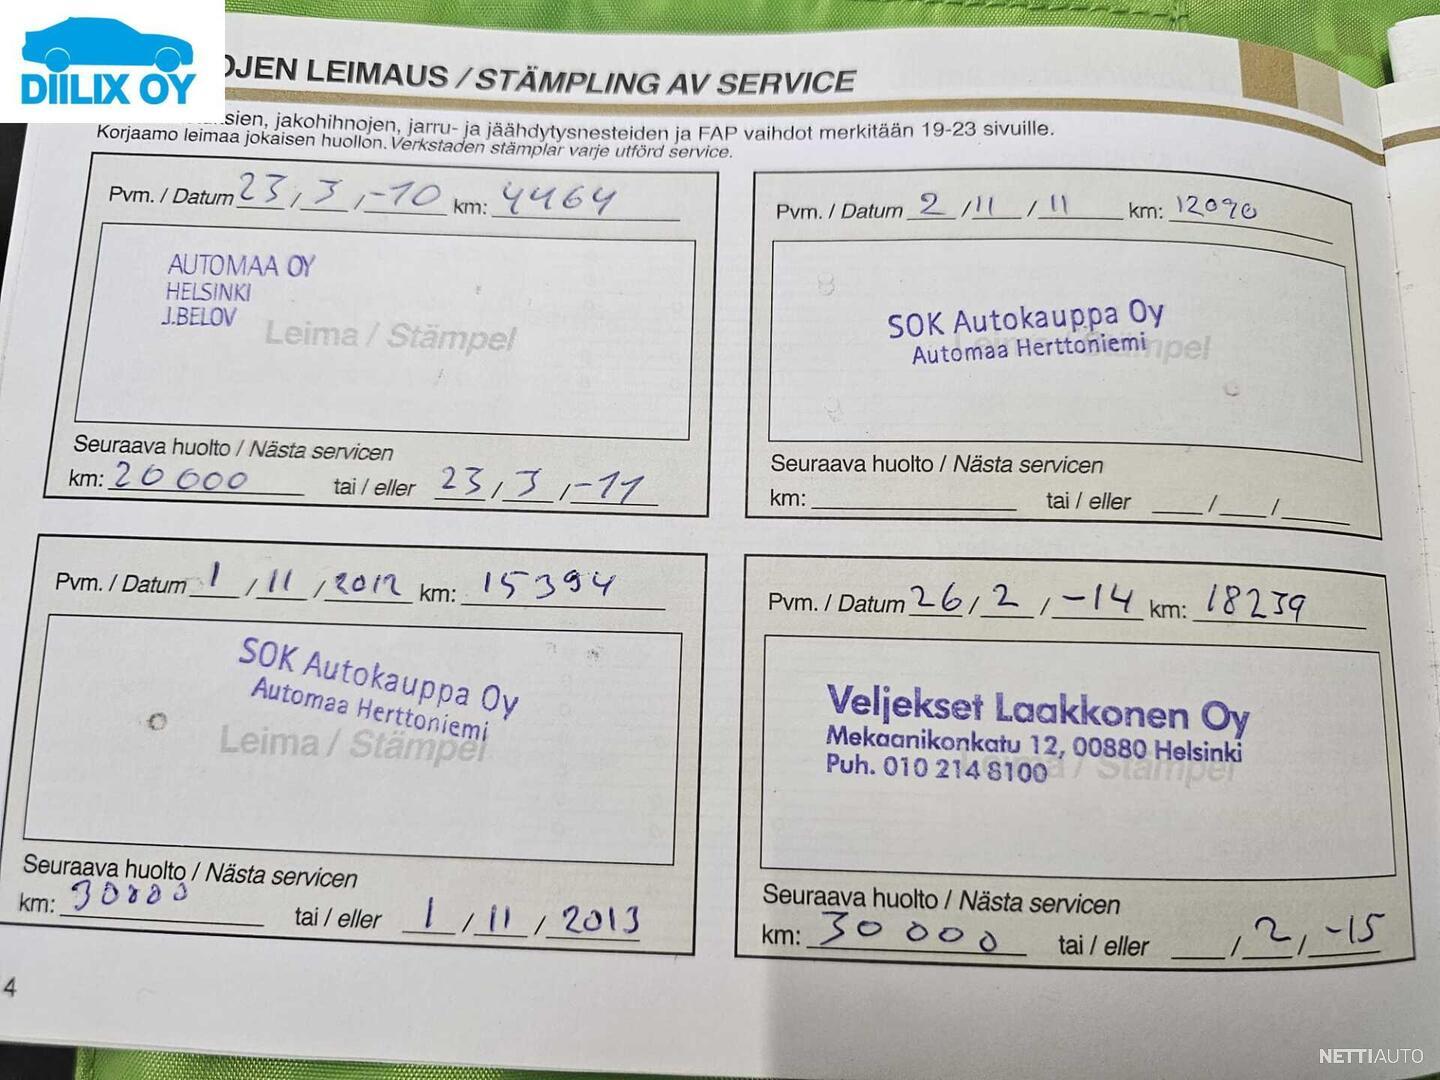 DIILIX OY
OJEN LEIMAUS / STÄMPLING AV SERVICE
sien, jakohihnojen, jarru- ja jäähdytysnesteiden ja FAP vaihdot merkitään 19-23 sivuille.
Korjaamo leimaa jokaisen huollon. Verkstaden stämplar varje utförd service.
Pvm. / Datum 23 / 3 / -10 km: 4464
AUTOMAA OY
HELSINKI
J.BELOV
Leima / Stämpel
Seuraava huolto / Nästa servicen
km: 20 000 tai / eller 23 / 3 / -11
Pvm. / Datum 2 / 11 / 11 km: 12090
SOK Autokauppa Oy
Automaa Herttoniemi
Leima / Stämpel
Seuraava huolto / Nästa servicen
km: tai / eller / /
Pvm. / Datum 1 / 11 / 2012 km: 15394
SOK Autokauppa Oy
Automaa Herttoniemi
Leima / Stämpel
Seuraava huolto / Nästa servicen
km: 30000 tai / eller 1 / 11 / 2013
Pvm. / Datum 26 / 2 / -14 km: 18239
Veljekset Laakkonen Oy
Mekaanikonkatu 12, 00880 Helsinki
Puh. 010 214 8100
Leima / Stämpel
Seuraava huolto / Nästa servicen
km: 30 000 tai / eller / 2 / -15
4
NETTIAUTO